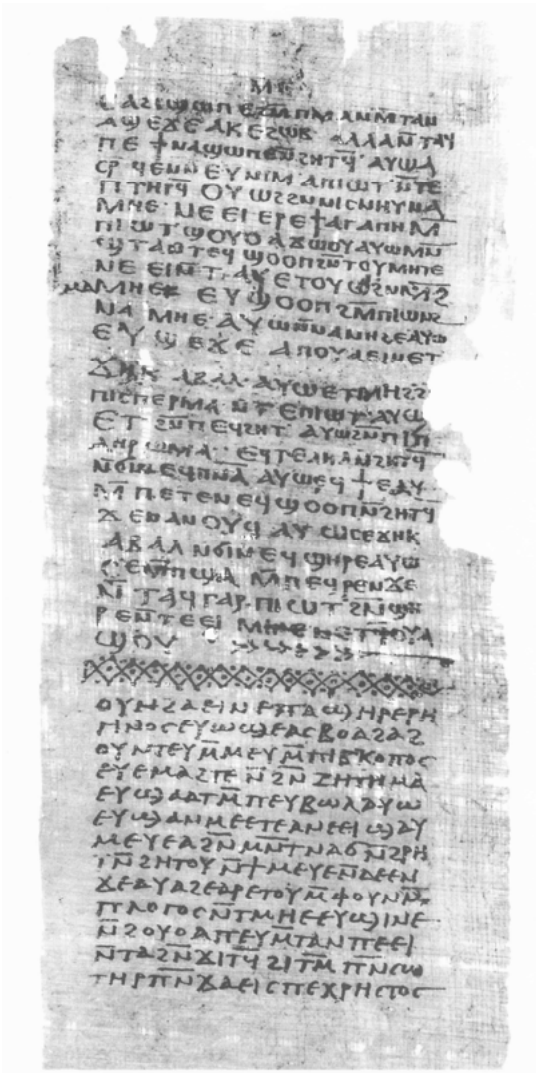 ⲙⲅ
ⲉⲁϩⲓϣⲱⲡⲉ ϩⲙ̄ ⲡⲙⲁ ⲛ̄ⲙ̄ⲧⲁⲛ
ⲁϣⲉϫⲉ ⲁⲕⲉϩⲱⲃ· ⲁⲗⲗⲁ ⲛ̄ⲧⲁϥ
ⲡⲉ ϯⲛⲁϣⲱⲡⲉ ⲛ̄ϩⲏⲧϥ̄· ⲁⲩⲱ ⲁ
ⲥⲣϥⲉ ⲛⲛⲉⲩ ⲛⲓⲙ· ⲁⲡⲓⲱⲧ· ⲛ̄ⲧⲉ
ⲡⲧⲏⲣϥ̄ ⲟⲩⲱϩ ϩⲛ ⲛⲓⲥⲛⲏⲩ ⲛⲁ
ⲙⲏⲉ· ⲛⲉⲉⲓ ⲉⲣⲉϯⲁⲅⲁⲡⲏ ⲙ̄
ⲡⲓⲱⲧ ϣⲟⲩⲟ ⲁϫⲱⲟⲩ ⲁⲩⲱ ⲙⲛ̄
ϣⲧⲁ ⲛ̄ⲧⲉϥ ϣⲟⲟⲡ ϩⲛ̄ ⲧⲟⲩⲙⲏⲧⲉ
ⲛⲉⲉⲓ ⲛ̄ⲧⲁⲩ ⲉⲧⲟⲩⲱⲛϩ ⲙ̄
ⲙⲁⲙⲏⲉ ⲉⲩϣⲟⲟⲡ ϩⲙ̄ ⲡⲓⲱⲛϩ
ⲛⲁⲙⲏⲉ· ⲁⲩⲱ ⲛ̄ⲛⲁⲛⲏϩⲉ ⲁⲩⲱ
ⲉⲩϣⲉϫⲉ ⲁⲡⲟⲩⲁⲉⲓⲛ ⲉⲧ
ϫⲏⲕ ⲁⲃⲁⲗ· ⲁⲩⲱ ⲉⲧⲙⲏϩ ϩ
ⲡⲓⲥⲡⲉⲣⲙⲁ ⲛ̄ⲧⲉ ⲡⲓⲱⲧ· ⲁⲩⲱ
ⲉⲧϩⲛ̄ ⲡⲉϥϩⲏⲧ· ⲁⲩⲱ ϩⲛ̄ ⲡⲓⲡ
ⲗⲏⲣⲱⲙⲁ· ⲉϥⲧⲉⲗⲏⲗ ⲛ̄ϩⲏⲧϥ̄
ⲛ̄ϭⲓ ⲡⲉϥⲡⲛ̄ⲁ̄ ⲁⲩⲱ ⲉϥϯⲉⲁⲩ
ⲙ̄ⲡⲉⲧⲉⲛⲉϥϣⲟⲟⲡ ⲛ̄ϩⲏⲧϥ̄
ϫⲉ ⲛⲁⲛⲟⲩϥ ⲁⲩⲱ ⲥⲉϫⲏⲕ
ⲁⲃⲁⲗ ⲛ̄ϭⲓ ⲛⲉϥϣⲏⲣⲉ ⲁⲩⲱ
ⲥⲉⲙ̄ⲡϣⲁ ⲙ̄ⲡⲉϥⲣⲉⲛ ϫⲉ
ⲛ̄ⲧⲁϥ ⲅⲁⲣ· ⲡⲓⲱⲧ· ϩⲛ̄ϣⲏ
ⲣⲉ ⲛ̄ⲧⲉⲉⲓ ⲙⲓⲛⲉ ⲛⲉⲧϥⲟⲩⲁ
ϣⲟⲩ
ⲟⲩⲛ ϩⲁⲉⲓⲛⲉ ⲡⲁϣⲏⲣⲉ ⲣⲏ
ⲅⲓⲛⲟⲥ ⲉⲩⲱϣ ⲉⲁⲥⲃⲟ ⲁϩⲁϩ
ⲟⲩⲛⲧⲉⲩ ⲙ̄ⲙⲉⲩ ⲙ̄ⲡⲓⲥⲕⲟⲡⲟⲥ
ⲉⲩⲉⲙⲁϩⲧⲉ ⲛ̄ϩⲛ̄ⲍⲏⲧⲏⲙⲁ
ⲉⲩϣⲁⲁⲧ ⲙ̄ⲡⲉⲩⲃⲱⲗ ⲁⲩⲱ
ⲉⲩϣⲁⲛⲙⲉⲉⲧⲉ ⲁⲛⲉⲉⲓ ϣⲁⲩ
ⲙⲉⲩⲉ ⲁϩⲛ̄ⲙⲛ̄ⲧⲛⲁϭ ⲛ̄ϩⲣⲏ
ⲓ̈ ⲛ̄ϩⲏⲧⲟⲩ ⲛ̄ϯⲙⲉⲩⲉ ⲛ̄ⲇⲉ ⲉⲛ
ϫⲉ ⲁⲩⲁϩⲉ ⲁⲣⲉⲧⲟⲩ ⲙ̄ⲫⲟⲩⲛ ⲙ̄
ⲡⲗⲟⲅⲟⲥ ⲛ̄ⲧⲙⲏⲉ ⲉⲩϣⲓⲛⲉ
ⲛ̄ϩⲟⲩⲟ ⲁⲡⲉⲩⲙ̄ⲧⲁⲛ ⲡⲉⲉⲓ
ⲛ̄ⲧⲁϩⲛ̄ϫⲓⲧϥ̄ ϩⲓⲧⲙ̄ ⲡⲛ̄ⲥⲱ
ⲧⲏⲣ ⲡⲛ̄ϫⲁⲉⲓⲥ ⲡⲉⲭⲣⲏⲥⲧⲟⲥ